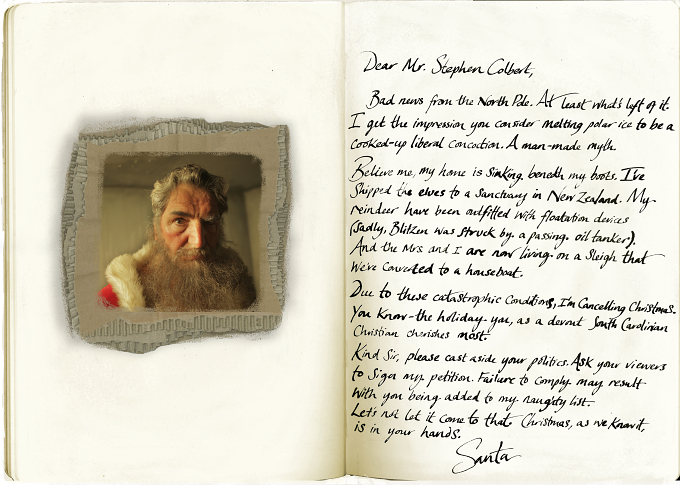 Dear Mr. Stephen Colbert,
Bad news from the North Pole. At least what's left of it.
I get the impression you consider melting polar ice to be a
cooked-up liberal concoction. A man-made myth.
Believe me, my home is sinking beneath my boots. I've
shipped the elves to a sanctuary in New Zealand. My
reindeer have been outfitted with floatation devices
(sadly, Blitzen was struck by a passing oil tanker).
And the Mrs and I are now living on a sleigh that
we've converted to a houseboat.
Due to these catastrophic conditions, I'm cancelling Christmas.
You know-the holiday you, as a devout South Carolinian
Christian cherishes most.
Kind Sir, please cast aside your politics. Ask your viewers
to sign my petition. Failure to comply may result
with you being added to my naughty list.
Let's not let it come to that. Christmas, as we know it,
is in your hands.
Santa